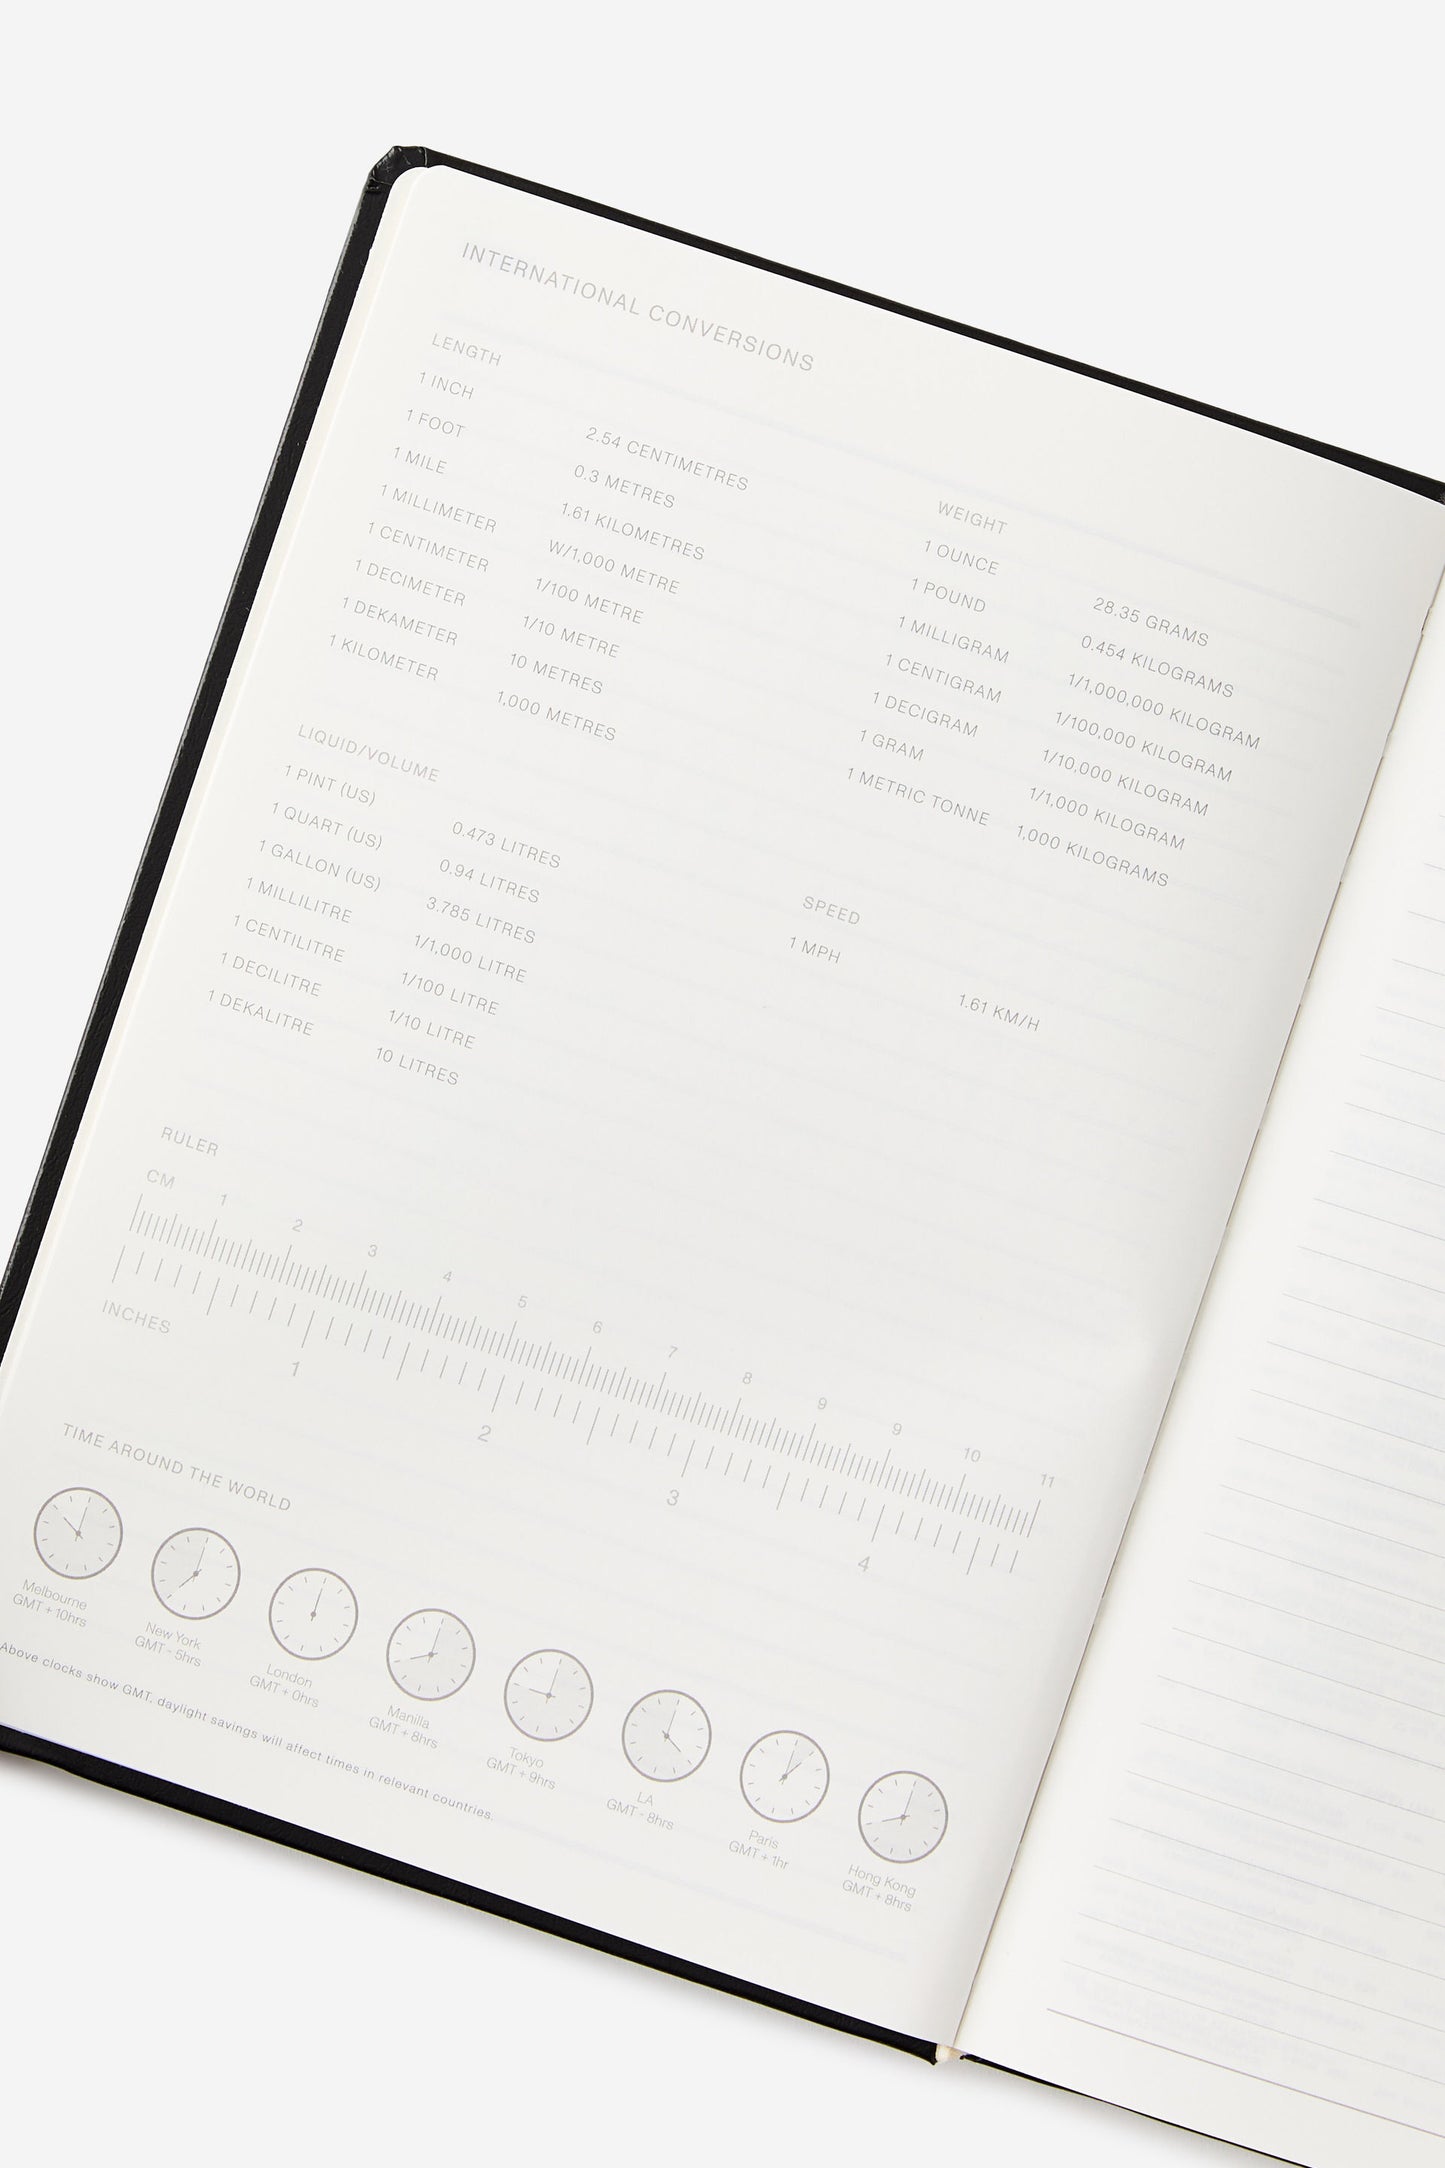 INTERNATIONAL CONVERSIONS
LENGTH
1 INCH 2.54 CENTIMETRES
1 FOOT 0.3 METRES
1 MILE 1.61 KILOMETRES
1 MILLIMETER W/1,000 METRE
1 CENTIMETER 1/100 METRE
1 DECIMETER 1/10 METRE
1 DEKAMETER 10 METRES
1 KILOMETER 1,000 METRES
WEIGHT
1 OUNCE 28.35 GRAMS
1 POUND 0.454 KILOGRAMS
1 MILLIGRAM 1/1,000,000 KILOGRAM
1 CENTIGRAM 1/100,000 KILOGRAM
1 DECIGRAM 1/10,000 KILOGRAM
1 GRAM 1/1,000 KILOGRAM
1 METRIC TONNE 1,000 KILOGRAMS
LIQUID/VOLUME
1 PINT (US) 0.473 LITRES
1 QUART (US) 0.94 LITRES
1 GALLON (US) 3.785 LITRES
1 MILLILITRE 1/1,000 LITRE
1 CENTILITRE 1/100 LITRE
1 DECILITRE 1/10 LITRE
1 DEKALITRE 10 LITRES
SPEED
1 MPH 1.61 KM/H
RULER
CM 1 2 3 4 5 6 7 8 9 9 10 11
INCHES 1 2 3 4
TIME AROUND THE WORLD
Melbourne
GMT + 10hrs
New York
GMT - 5hrs
London
GMT + 0hrs
Manilla
GMT + 8hrs
Tokyo
GMT + 9hrs
LA
GMT - 8hrs
Paris
GMT + 1hr
Hong Kong
GMT + 8hrs
Above clocks show GMT, daylight savings will affect times in relevant countries.